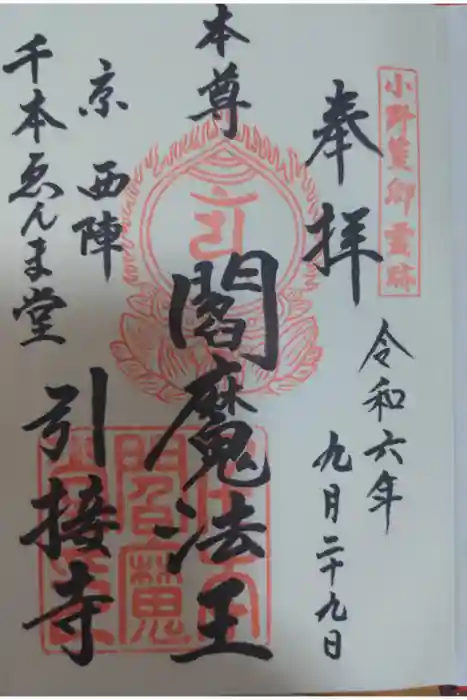 小野篁卿霊跡
奉拝
令和六年
九月二十九日
本尊
閻魔法王
京 西陣
千本ゑんま堂
引接寺